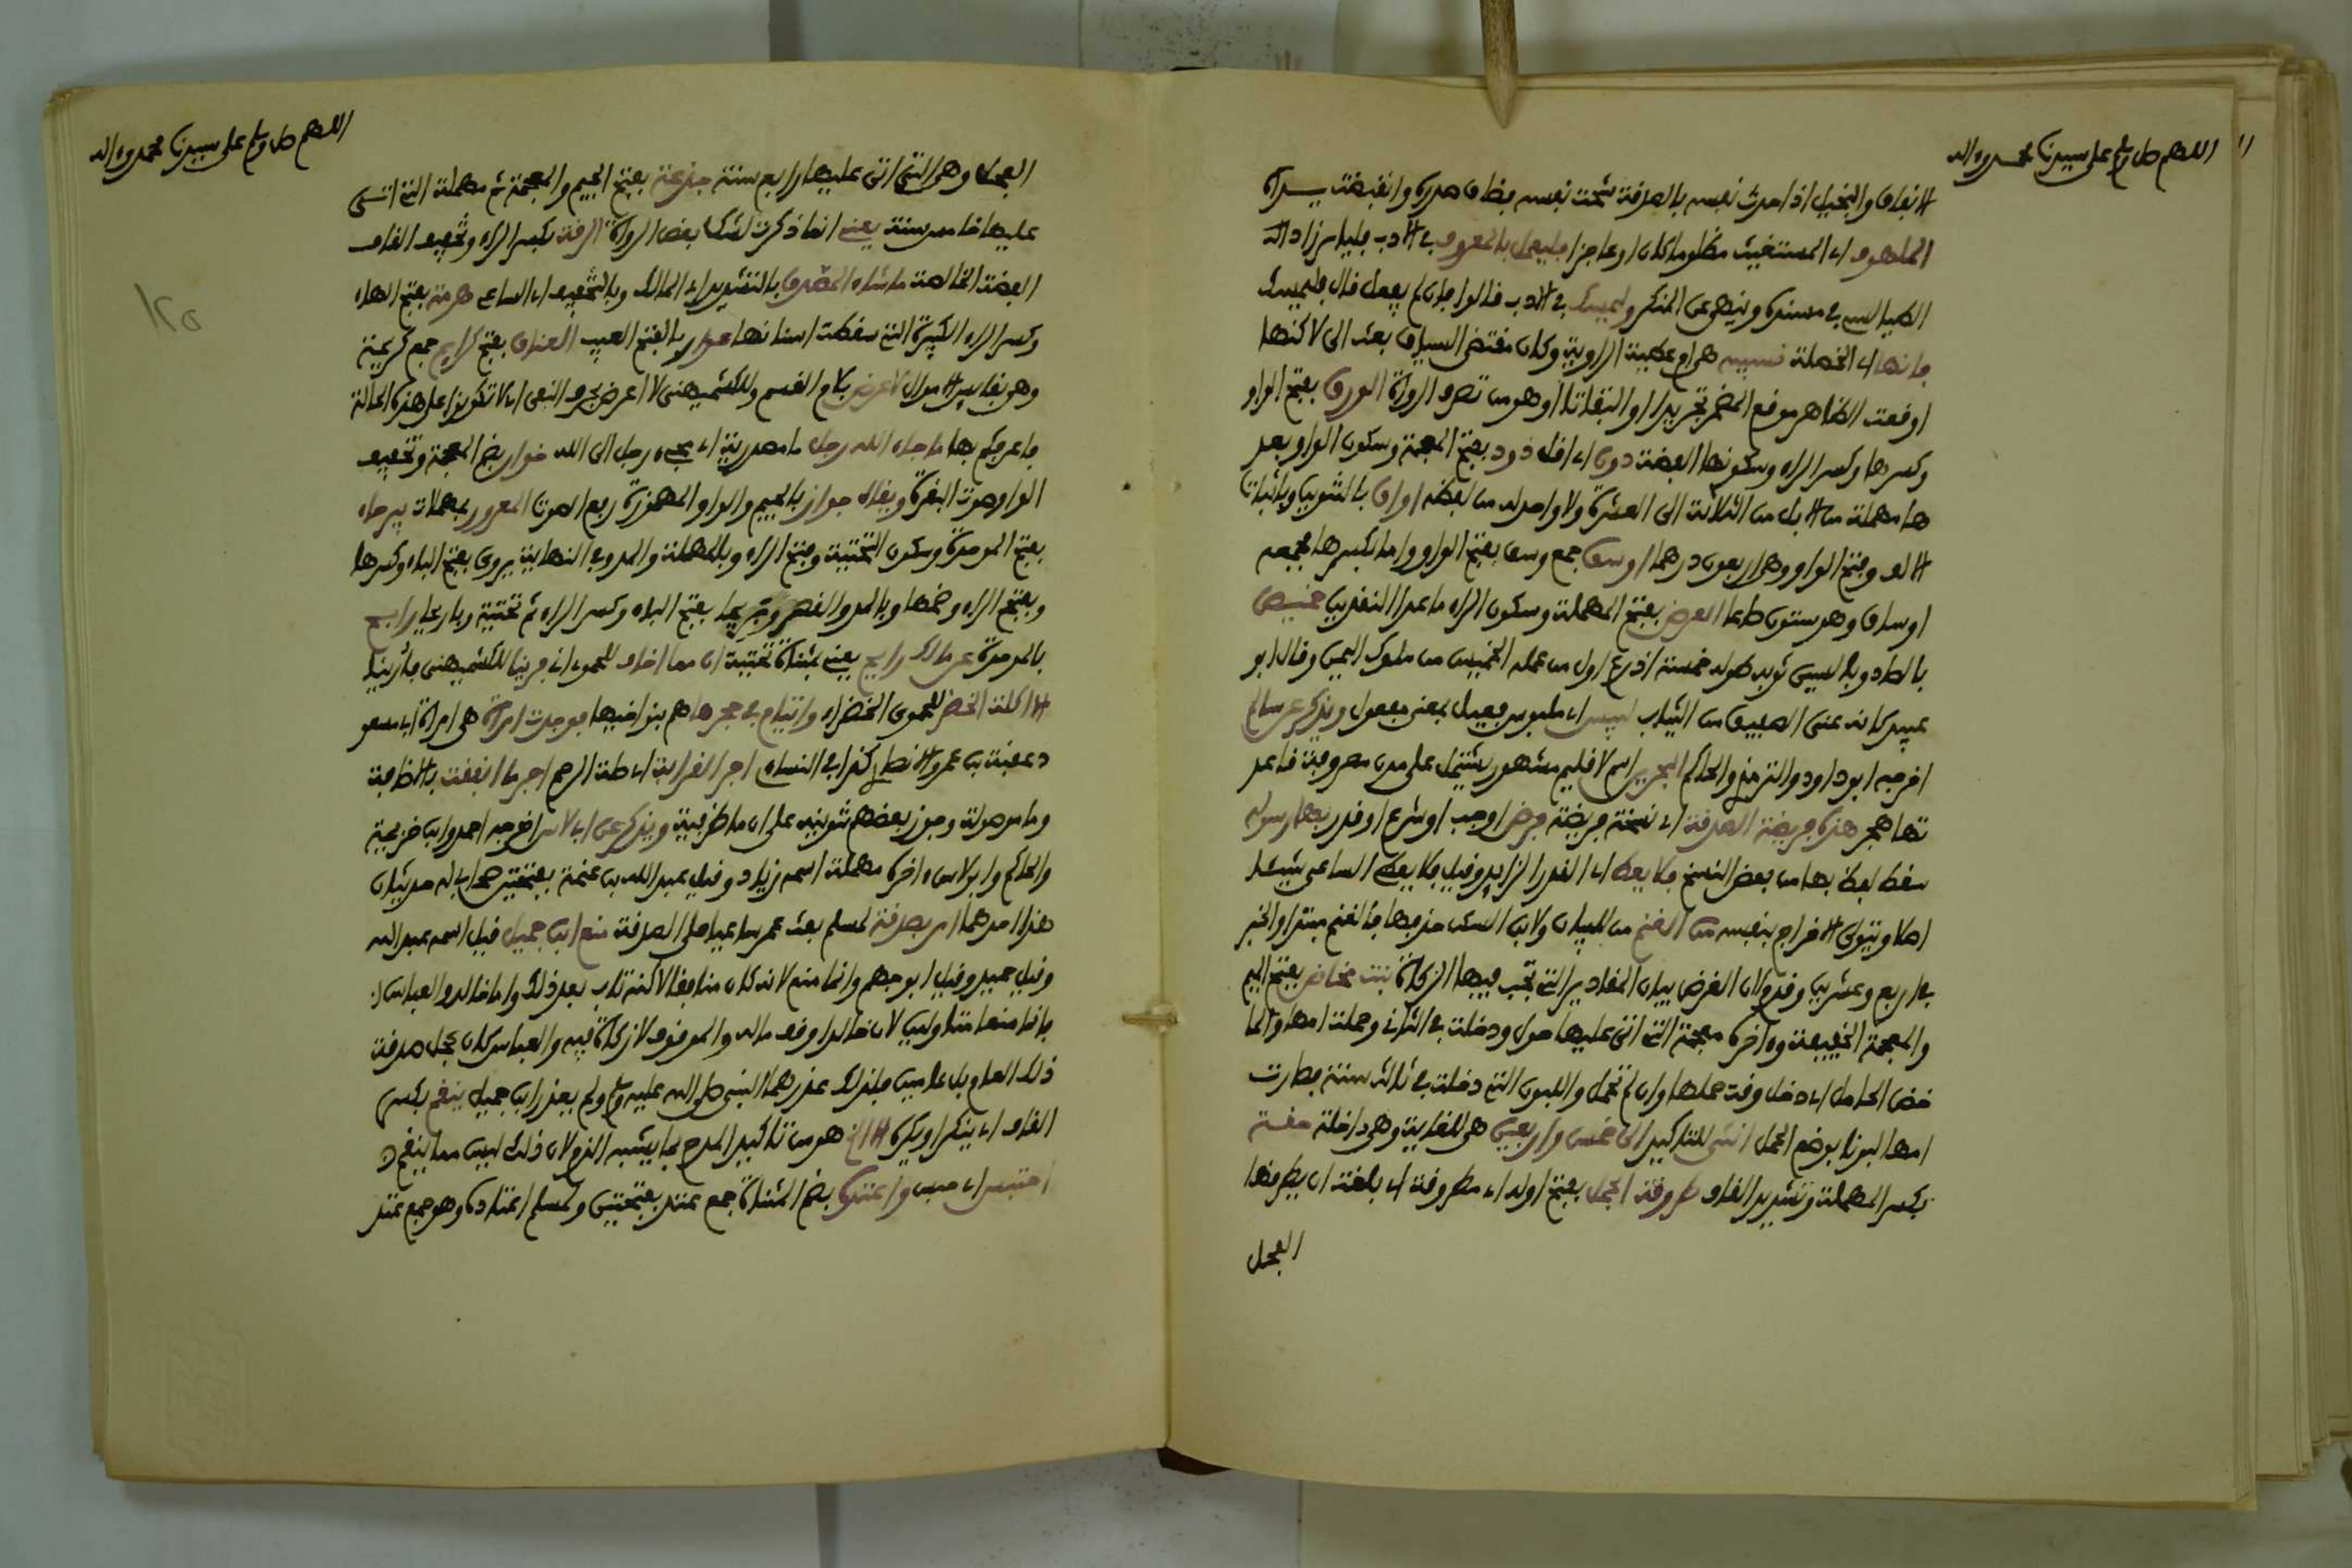 اللهم صل وسلم على سيدنا محمد وءاله
الانفاق والبخيل اذا حدث نفسه بالصدقة شحت نفسه فضاق صدره وانقبضت يداه
الملهوف اي المستغيث مظلوما كان او عاجزا فليعمل بالمعروف في الادب فليامر زاد
الطيالسي في مسنده وينهى عن المنكر وليمسك في الادب قالوا فان لم يفعل قال فليمسك
فانها اي الخصلة نسيبة هي ام عطية الراوية وكان مقتضى السياق بعث الي لاكنها
اوقعت الظاهر موقع المضمر تجريدا او التفاتا او هو من تصرف الرواة الورق بفتح الواو
وكسرها وكسر الراء وسكونها الفضة دون اي اقل ذود بفتح المعجمة وسكون الواو بعد
ها مهملة من الابل من الثلاثة الى العشرة ولا واحد له من لفظه اواق بالتنوين وباثبات
الالف وفتح الواو وهي اربعون درهما اوسق جمع وسق بفتح الواو واما بكسرها فجمعه
اوساق وهو ستون صاعا العرض بفتح المهملة وسكون الراء ما عدا النقدين خميص
بالصاد وبالسين ثوب طوله خمسة اذرع اول من عمله الخميس من ملوك اليمن وقال ابو
عبيد كانه عنى الصفيق من الثياب لبيس اي ملبوس فعيل بمعنى مفعول ويذكر عن سالم
اخرجه ابو داود والترمذي والحاكم البحرين اسم لاقليم مشهور يشتمل على مدن معروفة قاعد
تها هجر هذه فريضة الصدقة اي نسخة فريضة فرض اوجب او شرع او قدر بها رسوله
سقط لفظ بها من بعض النسخ فلا يعط اي القدر الزايد وقيل فلا يعط الساعي شيئا
اصلا ويتولى الاخراج بنفسه من الغنم من للبيان ولابن السكن حذفها فالغنم مبتدا والخبر
في اربع وعشرين وقدم لان الغرض بيان المقادير التي تجب فيها الزكاة بنت مخاض بفتح الميم
والمعجمة الخفيفة وءاخره معجمة التي اتى عليها حول ودخلت في الثاني وحملت امها والما
خض الحامل اي دخل وقت حملها وان لم تحمل واللبون التي دخلت في ثالث سنة فصارت
امها لبونا بوضع الحمل انثى للتاكيد الى خمس واربعين هي للغاية وهي داخلة حقة
بكسر المهملة وتشديد القاف طروقة الجمل بفتح اوله اي مطروقة اي بلغت ان يطرقها
الفحل
اللهم صل وسلم على سيدنا محمد وءاله
الفحل وهي التي اتى عليها رابع سنة جذعة بفتح الجيم والمعجمة ثم مهملة التي اتى
عليها خامس سنة يعني انما ذكرت لشك بعض الرواة الرقة بكسر الراء وتخفيف القاف
الفضة الخالصة ما شاء المصدق بالتشديد اي المالك وبالتخفيف اي الساعي هرمة بفتح الهاء
وكسر الراء الكبيرة التي سقطت اسنانها عوار بالفتح العيب العناق بفتح كرايم جمع كريمة
وهي نفايس الاموال لاعرفن بلام القسم وللكشميهني لا اعرفن بحرف النفي اي لا تكونوا على هذه الحالة
فاعرفكم بها ما جاء الله رجل ما مصدرية اي مجيء رجل الى الله خوار بضم المعجمة وتخفيف
الواو صوت البقرة ويقال جوار بالجيم والواو المهموزة رفع الصوت المعرور بمهملات بيرحاء
بفتح الموحدة وسكون التحتية وفتح الراء وبالمهملة والمد وفي النهاية يروى بفتح الباء وكسرها
وبفتح الراء وضمها وبالمد والقصر وبريحا بفتح الباء وكسر الراء ثم تحتية وباريحا رابح
بالموحدة عن مالك رايح يعني بمثناة تحتية ان مما اخاف للحموي اني فرينا للكشميهني فأرينا
الاكلة الخضر للحموي الخضراء وايتام في حجرها هم بنو اخيها فوجدت امراة هي امراة ابي مسعو
د عقبة بن عمرو الانصاري كذا في النساءي اجر القرابة اي صلة الرحم اجر ما انفقت بالاضافة
وما موصولة وجوز بعضهم تنوينه على ان ما ظرفية ويذكر عن ابي لاس اخرجه احمد وابن خزيمة
والحاكم وابو لاس ءاخره مهملة اسمه زياد وقيل عبد الله بن عنمة بفتحتين صحابي له حديثان
هذا احدهما امر بصدقة لمسلم بعث عمر ساعيا على الصدقة منع ابن جميل قيل اسمه عبد الله
وقيل حميد وقيل ابو جهم وانما منع لانه كان منافقا لاكنه تاب بعد ذلك واما خالد والعباس
فانما منعا متاولين لان خالدا وقف ماله والموقوف لا زكاة فيه والعباس كان عجل صدقة
ذلك العام وبل عامين فلذلك عذرهما النبي صلى الله عليه وسلم ولم يعذر ابن جميل ينقم بكسر
القاف اي ينكر او يكره الا ان هو من تاكيد المدح بما يشبه الذم لان ذلك ليس مما ينقم
احتبس اي حبس واعتده بضم المثناة جمع عتد بفتحتين ولمسلم اعتاده وهو جمع عتد